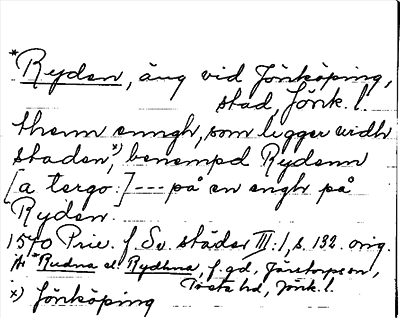 *Ryden, äng vid Jönköping,
stad, Jönk. l.
thenn enngh, som ligger widh
staden x), benempd Rydenn
[a tergo:] --- på en engh på
Ryden.
1570 Priv. f. Sv. städer III:1, s. 132. orig.
Jfr *Rudna el. Rydhna, f. gd, Järstorps sn,
Tveta hd, Jönk. l.
x) Jönköping